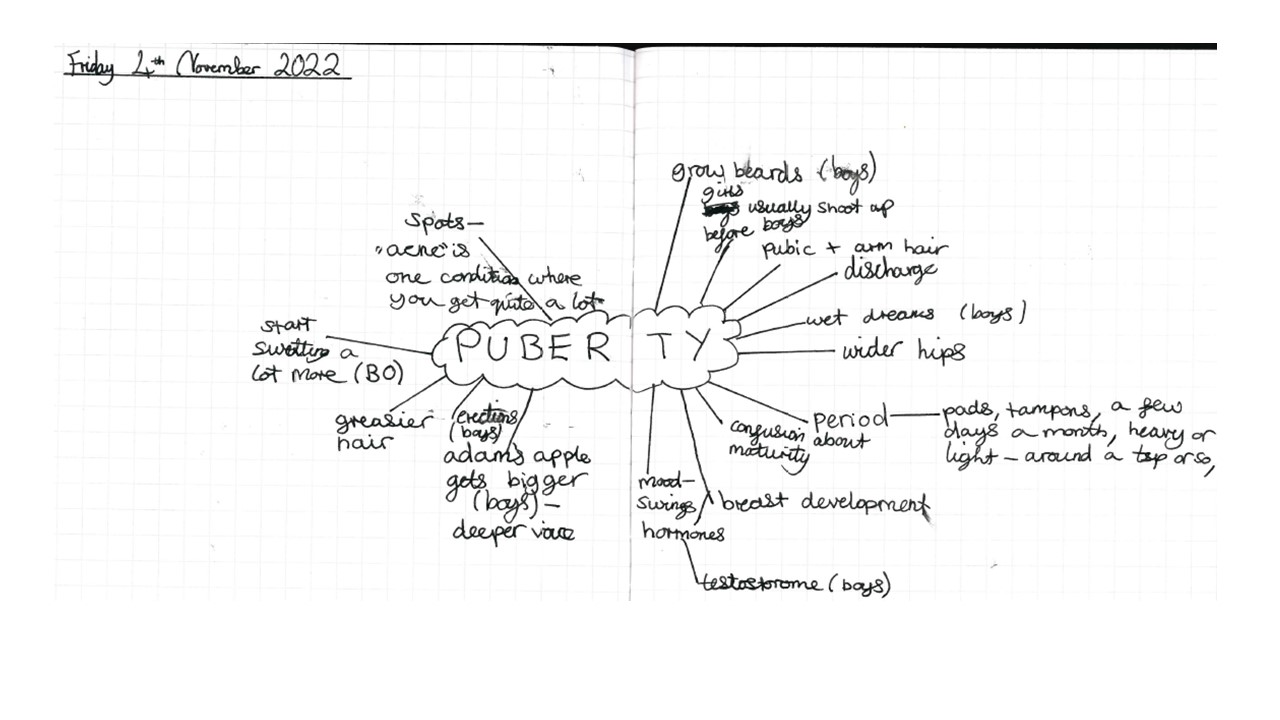 Friday 4th November 2022
grow beards (boys)
girls
usually shoot up
before boys
pubic + arm hair
discharge
wet dreams (boys)
wider hips
period
pads, tampons, a few
days a month, heavy or
light – around a tsp or so,
confusion about
maturity
breast development
mood-
swings
hormones
testostrome (boys)
PUBERTY
Spots –
"acne" is
one condition where
you get quite a lot
start
a
lot more (BO)
greasier
hair
erections
(boys)
adam's apple
gets bigger
(boys) –
deeper voice